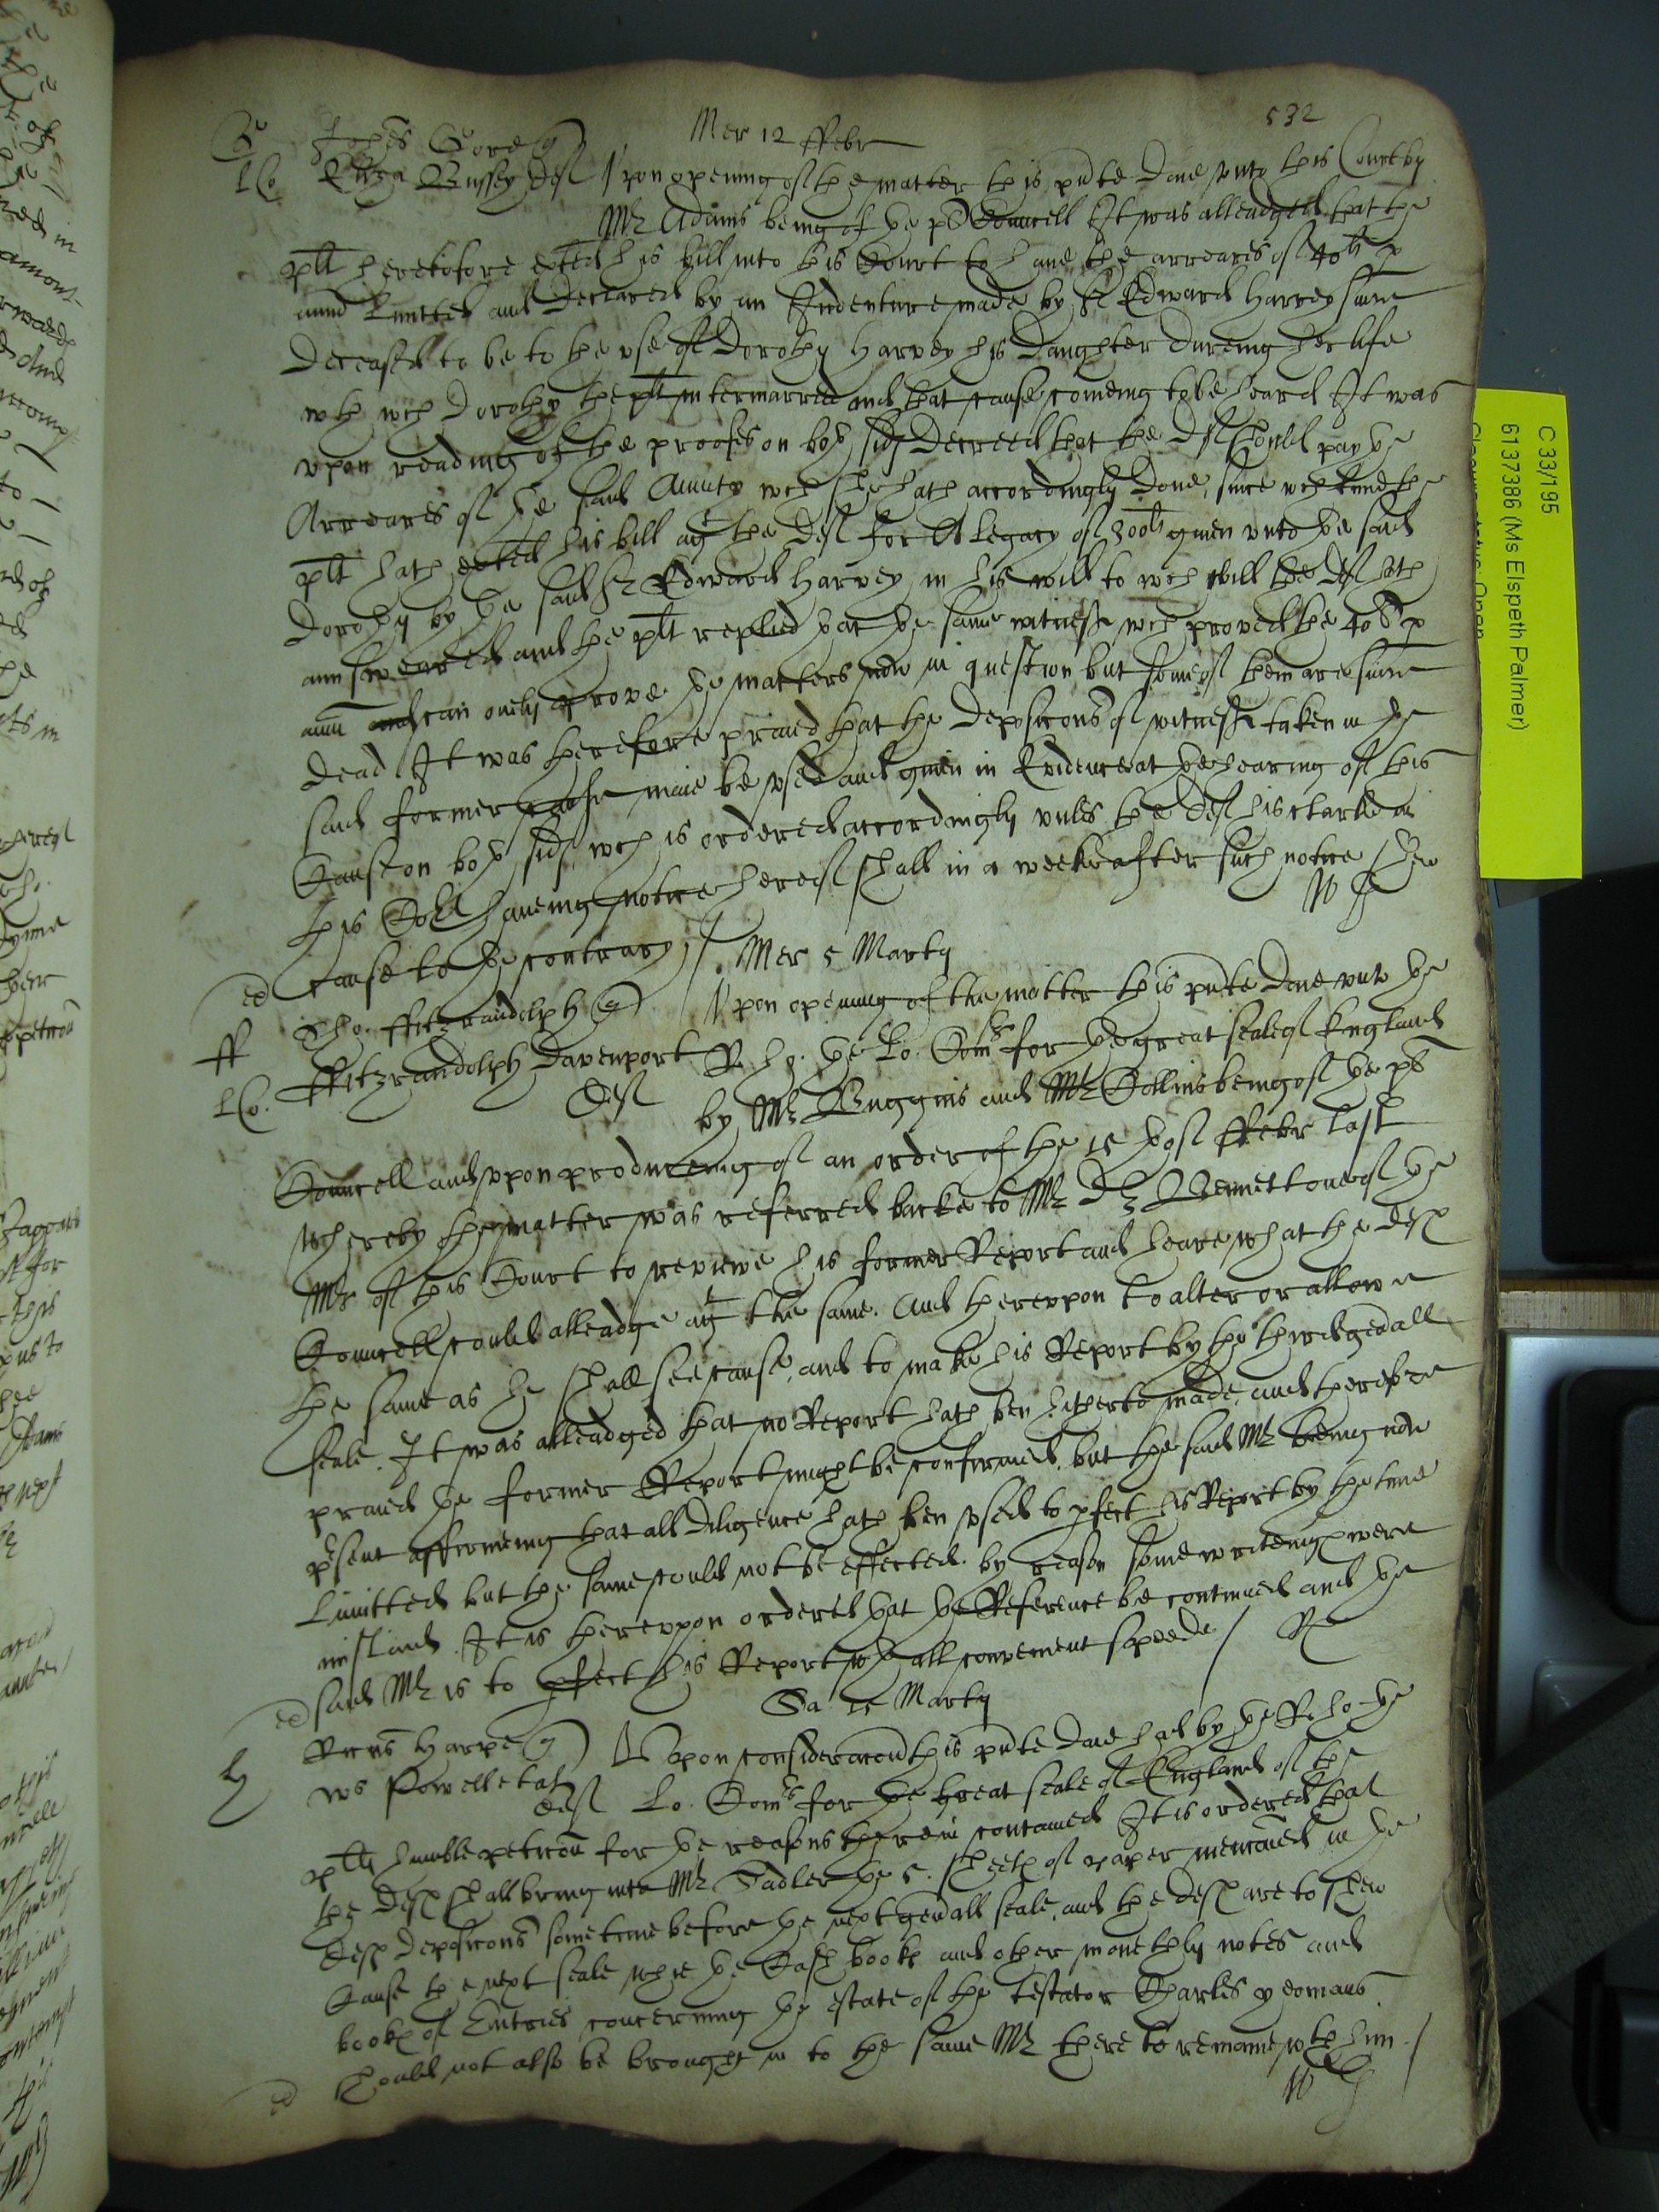 532
Mer 12 ffebr
Johes Gore q
Eliza Bussey def Upon opening of the matter this pnte daie unto this Court by
Mr Adams being of ye plt Councell It was alleadged that the
plt heretofore exted his bill into this Court to have the arreares of 40li p
annu Limitted and declared by an Indenture made by Sr Edward Harvey since
deceased to be to the use of Dorothy Harvey his daughter dureing her life
wth wch Dorothy the plt intermarried and that cause comeing to be heard It was
upon reading of the proofes on both sides decreed that the def should pay ye
Arreares of ye said Annuity wch she hath accordingly done, since wch time the
plt hath exted his bill agt the def for A Legacy of 300li given unto ye said
Dorothy by ye said Sr Edward Harvey in his will to wch bill the def hth
answeared and the plt replied yat ye same witnesses wch proved the 40li p
annu can onely prove ye matters now in question but some of them are since
dead It was therefore praied that the deposicons of witnesses taken in ye
said former cause maie be used and given in Evidence at ye hearing of this
Cause on both sides wch is ordered accordingly unles the def his clarke in
this Court haveing notice hereof shall in a weeke after such notice shew
cause to ye contrary /
Mer 5 Martij
Tho. ffitzrandolph q Upon opening of the matter this pnte daie unto ye
ffitzrandolph Davenport R. ho. ye Lo. Comrs for ye great seale of England
def by Mr Buggins and Mr Collins being of ye plts
Councell and upon produceing of an order of the 15th of ffebr last
whereby the matter was referred backe to Mr Dr Bennett one of ye
Mrs of this Court to reviewe his former Report and heare what the defts
Councell could alleadge agt the same. And thereupon to alter or allowe
the same as he shall see cause, and to make his Report by the third genall
seale. It was alleadged that no Report hath ben hitherto made, and therefore
praied ye former Report might be confirmed, but the said Mr being now
psent affirmeing that all diligence hath ben used to pfect his Report by the time
Limitted but the same could not be effected by reason some writeings were
mislaid. It is thereupon ordered yat ye Reference be continued and ye
said Mr is to pfect his Report wth all convenient speede /
Sa. 15 Martij
Harpe q Upon consideracon this pnte daie had by ye R. ho. ye
Powell et al def Lo. Comrs for ye great seale of England of the
plts humble peticon for ye reasons therein contained It is ordered that
the defts shall bring into Mr Sadler ye 5. sheets of paper menconed in ye
defts deposicons sometime before ye next genall seale, and the defts are to shew
Cause the next seale why ye Cash books and other monethly notes and
books of Entries concerning ye estate of the testator Charles Yeomans
should not also be brought in to the same Mr there to remaine wth him. /
C 33/195
6137386 (Ms Elspeth Palmer)